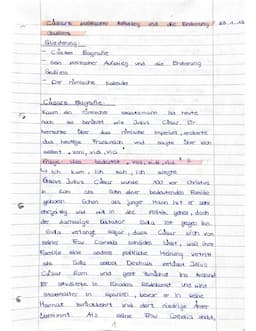 Cäsars politischer Aufstieg und die Eroberung
Galliens
Gliederung:
- Cäsars Biografie
- Sein politischer Aufstieg und die Eroberung
Galliens
- Der römische Kalender
Cäsars Biografie:
Kaum ein römischer Staatsmann ist heute
noch so berühmt wie Julius Cäsar. Er
herrschte über das römische Imperium, eroberte
das heutige Frankreich und sagte über sich
selbst "veni, vidi, vici."
Frage: Was bedeutet "veni, vidi, vici"?
Ich kam, ich sah, ich siegte
Gaius Julius Cäsar wurde 100 vor Christus
in Rom als Sohn einer bedeutenden Familie
geboren. Schon als junger Mann ist er sehr
ehrgeizig und will in die Politik gehen, doch
der damalige Diktator Sulla ist gegen ihn.
Sulla verlangt sogar, dass Cäsar sich von
seiner Frau Cornelia scheiden lässt, weil ihre
Familie eine andere politische Meinung vertritt
als Sulla selbst. Deshalb verlässt Julius
Cäsar Rom und geht
Er in Rhodos Redekunst und wird
Statthalter in Spanien, bevor er in seine
Heimat zurückkehrt und dort niedrige Ämter
übernimmt. Als seine Frau Cornelia starb,
1